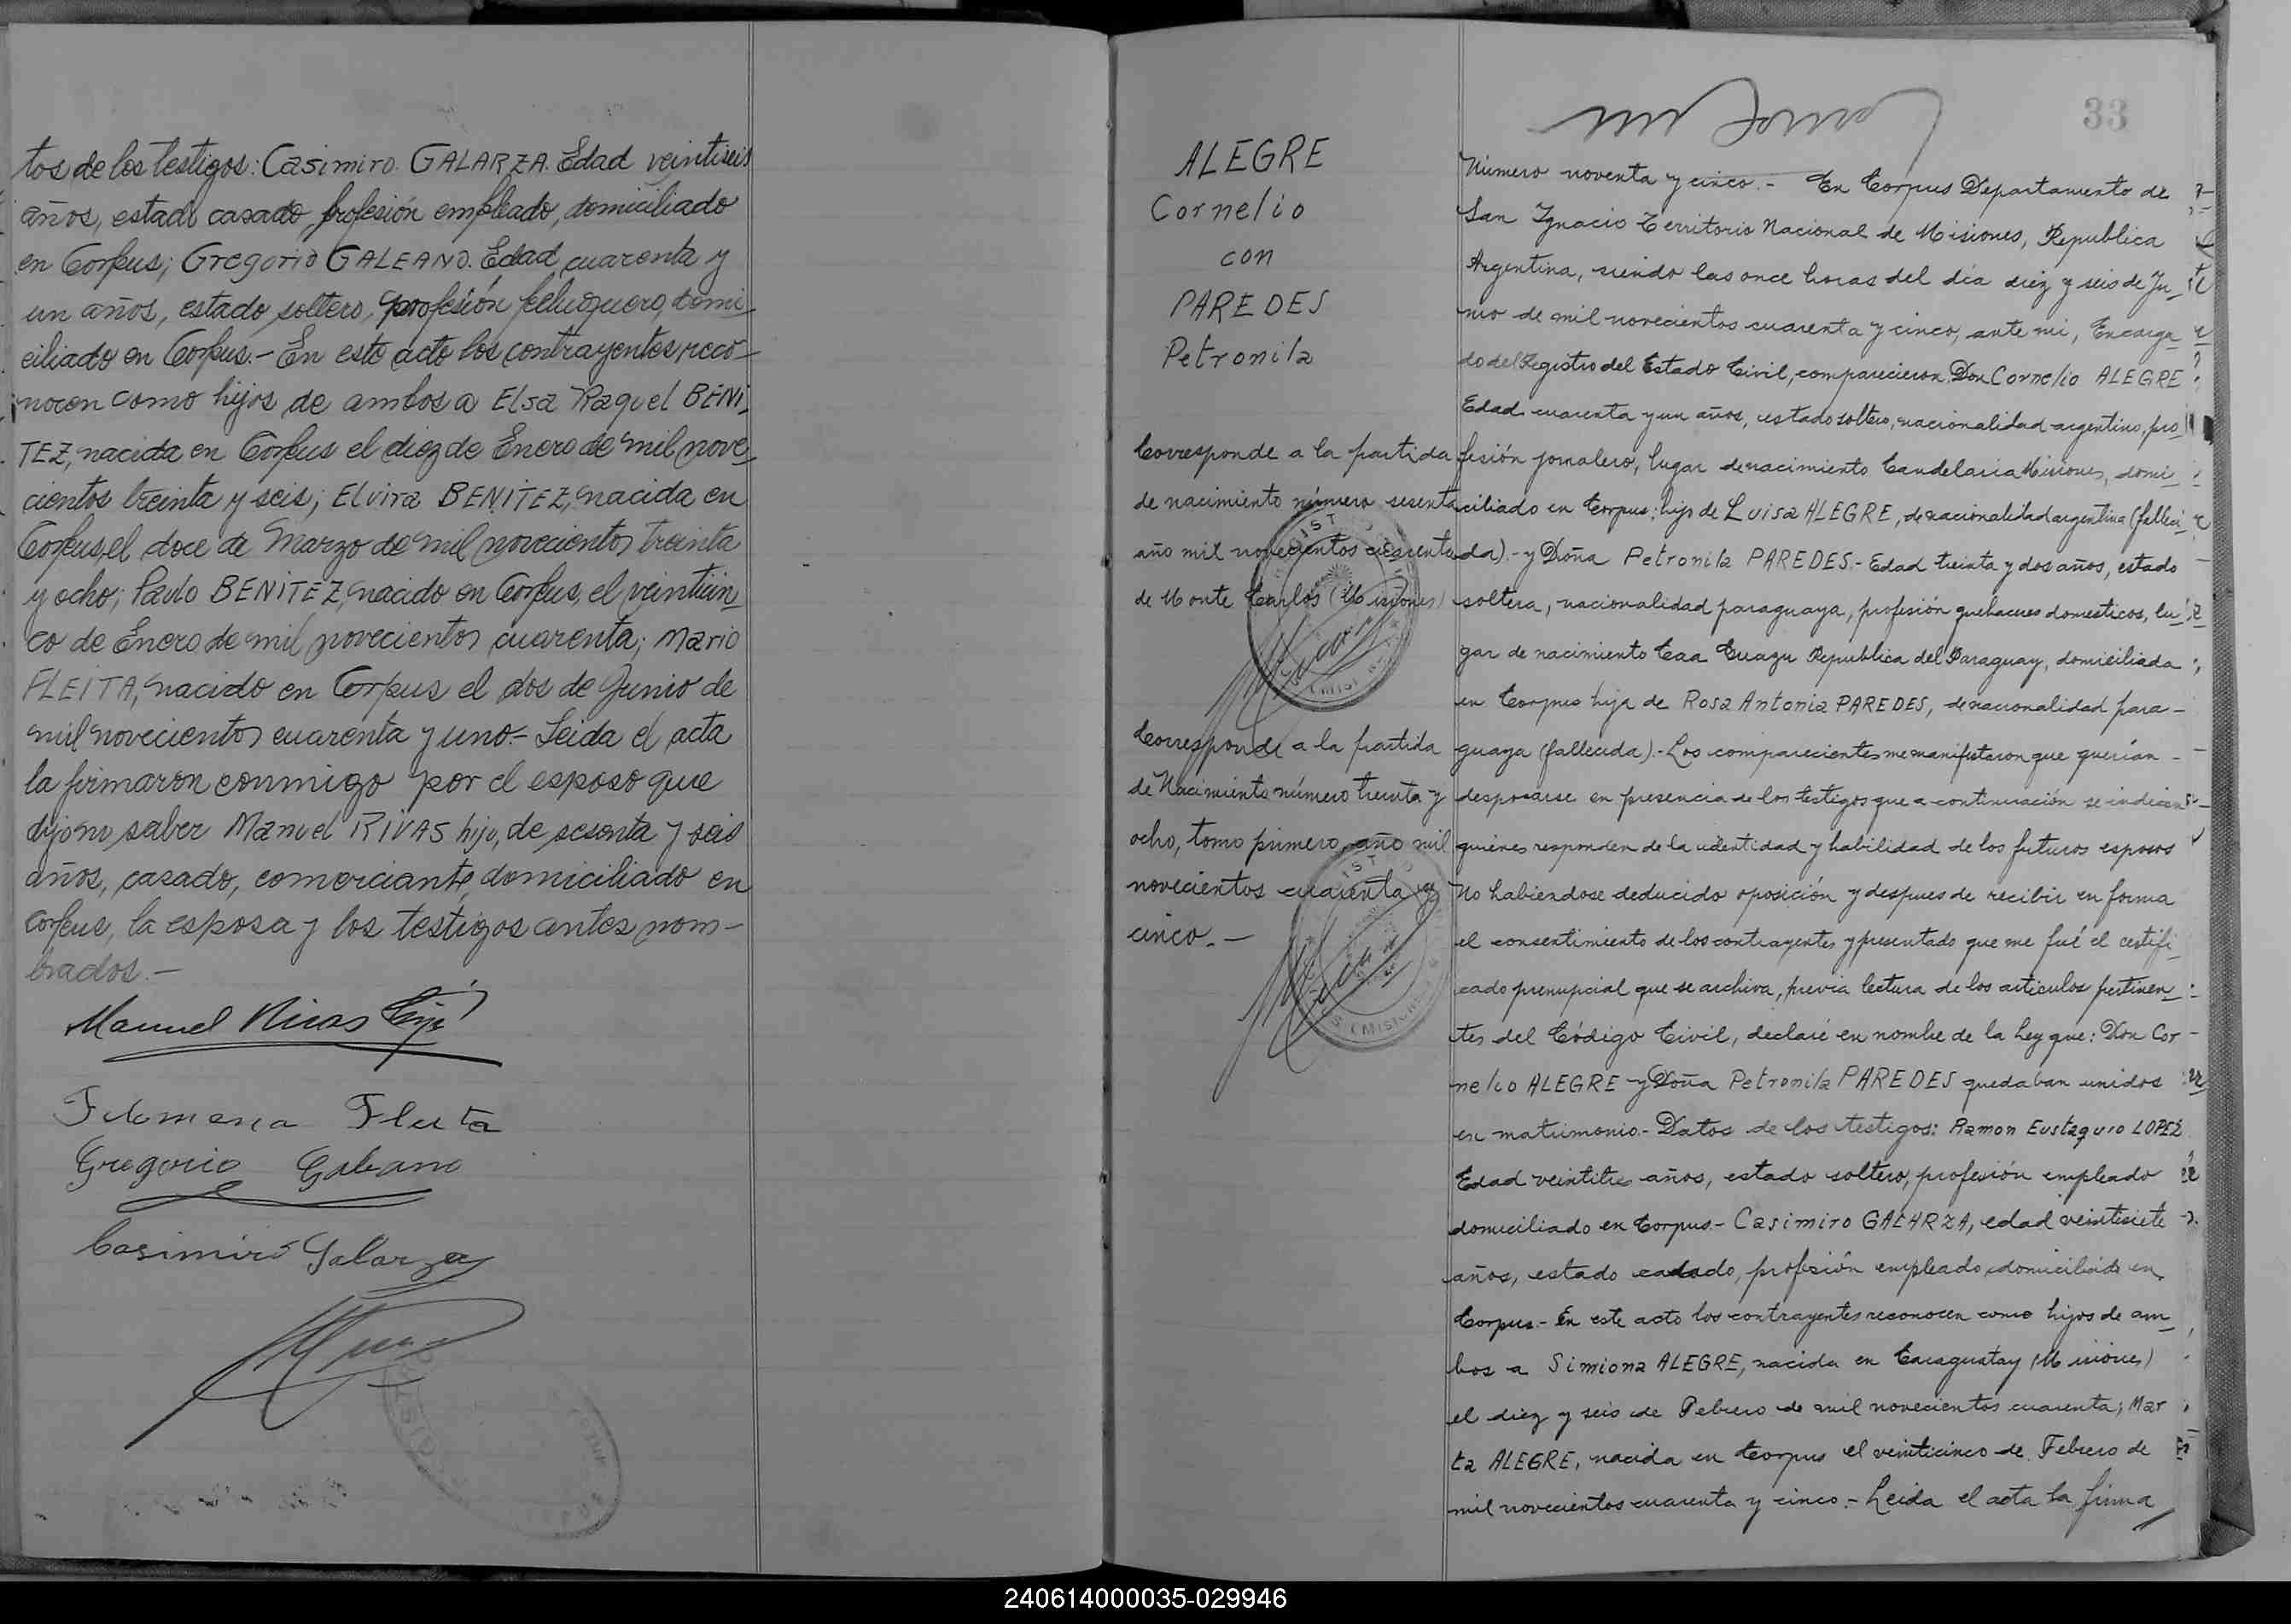 tos de los testigos: Casimiro GALARZA. Edad veintiseis
años, estado casado, profesión empleado, domiciliado
en Corpus; Gregorio GALEANO. Edad cuarenta y
un años, estado soltero, profesión peluquero, domi-
ciliado en Corpus.- En este acto los contrayentes reco-
nocen como hijos de ambos a Elsa Raquel BENI-
TEZ, nacida en Corpus el diez de Enero de mil nove-
cientos treinta y seis; Elvira BENITEZ, nacida en
Corpus, el doce de Marzo de mil novecientos treinta
y ocho; Pavlo BENITEZ, nacido en Corpus, el veinticin-
co de Enero de mil novecientos cuarenta; Mario
FLEITA, nacido en Corpus el dos de Junio de
mil novecientos cuarenta y uno.- Leida el acta
la firmaron conmigo por el esposo que
dijo no saber Manuel RIVAS hijo, de sesenta y seis
años, casado, comerciante, domiciliado en
Corpus, la esposa y los testigos antes nom-
brados.-
Manuel Rivas hijo
Filomena Fleita
Gregorio Galeano
Casimiro Galarza
33
ALEGRE
Cornelio
con
PAREDES
Petronila
Corresponde a la partida
de nacimiento número sesenta
año mil novecientos cuarenta
de Monte Carlos (Misiones)
Corresponde a la partida
de Nacimiento número treinta y
ocho, tomo primero, año mil
novecientos cuarenta y
cinco.-
Número noventa y cinco.- En Corpus Departamento de
San Ygnacio Territorio Nacional de Misiones, Republica
Argentina, siendo las once horas del día diez y seis de Ju-
nio de mil novecientos cuarenta y cinco, ante mi, Encarga-
do del Registro del Estado Civil, comparecieron, Don Cornelio ALEGRE
Edad cuarenta y un años, estado soltero, nacionalidad argentino, pro
fesión jornalero, lugar de nacimiento Candelaria Misiones, domi-
ciliado en Corpus; hijo de Luisa ALEGRE, de nacionalidad argentina (falleci-
da).- y Doña Petronila PAREDES.- Edad treinta y dos años, estado
soltera, nacionalidad paraguaya, profesión quehaceres domesticos, lu-
gar de nacimiento Caa Guazu Republica del Paraguay, domiciliada
en Corpus hija de Rosa Antonia PAREDES, de nacionalidad para-
guaya (fallecida).- Los comparecientes me manifestaron que querían
desposarse en presencia de los testigos que a continuación se indican
quienes responden de la identidad y habilidad de los futuros esposos
No habiendose deducido oposición y despues de recibir en forma
el consentimiento de los contrayentes y presentado que me fué el certifi-
cado prenupcial que se archiva, previa lectura de los articulos pertinen-
tes del Código Civil, declaré en nombre de la Ley que: Don Cor-
nelio ALEGRE y Doña Petronila PAREDES quedaban unidos
en matrimonio.- Datos de los testigos: Ramon Eustaquio LOPEZ
Edad veintitres años, estado soltero, profesión empleado
domiciliado en Corpus.- Casimiro GALARZA, edad veintisiete
años, estado casado, profesión empleado, domiciliado en
Corpus.- En este acto los contrayentes reconocen como hijos de am-
bos a Simiona ALEGRE, nacida en Caraguatay (Misiones)
el diez y seis de Febrero de mil novecientos cuarenta; Mar
ta ALEGRE, nacida en Corpus el veinticinco de Febrero de
mil novecientos cuarenta y cinco.- Leida el acta la firma
240614000035-029946